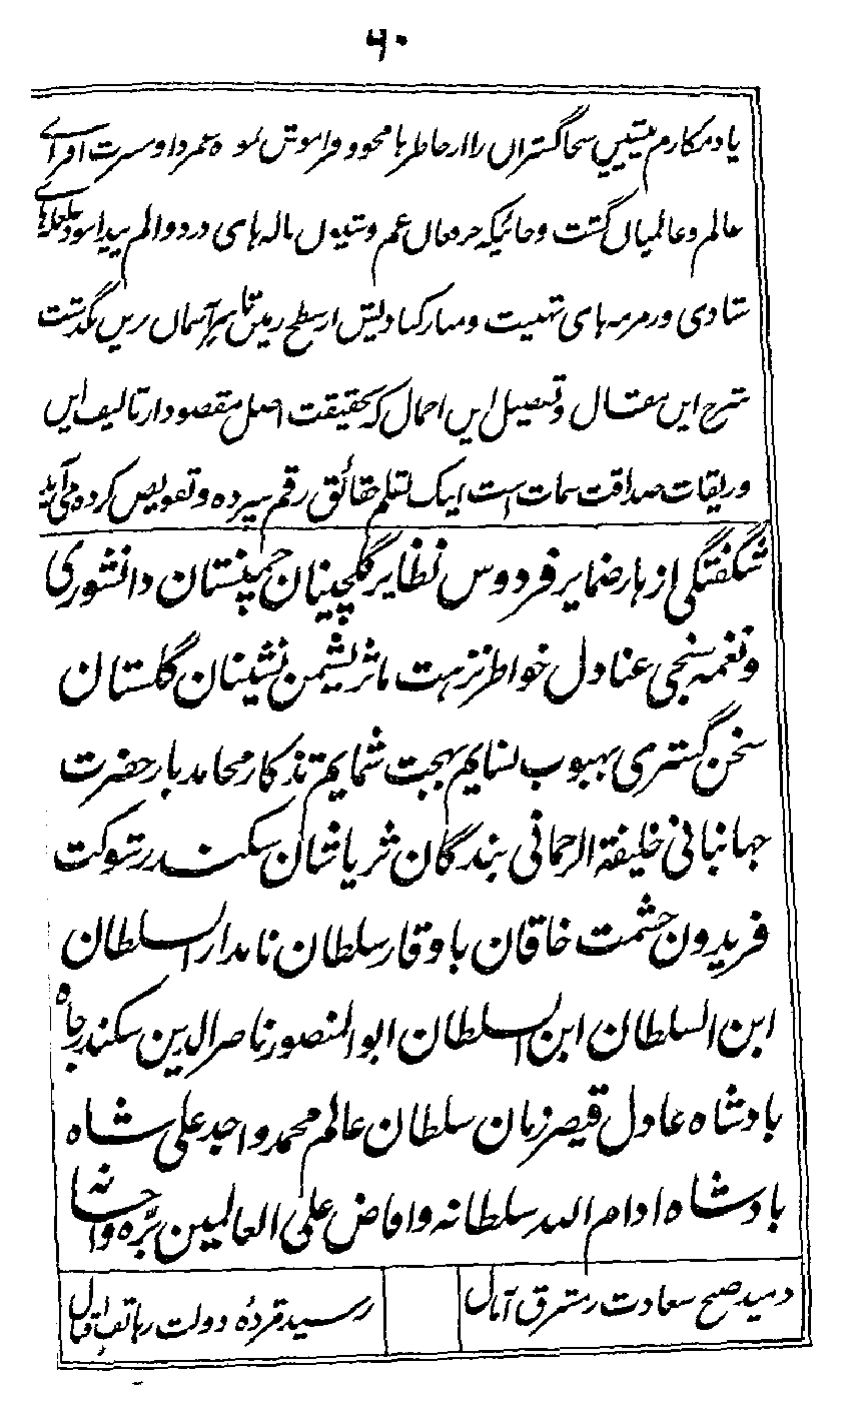 ۶۰
یاد مکارم پیشین سخاگستران را از خاطرها محو و فراموش نموده ثمرداد و مسرت افزای
عالم و عالمیان گشت و حالیکه غم و شیون ناله های درد والم پیدا بود غلغلهای
شادی و زمزمه های تهنیت و مبارکبادیش از سطح زمین تا بر آسمان برین بگذشت
شرح این مقال و تفصیل این اجمال که بحقیقت اصل مقصود از تالیف این
وریقات صداقت سمات است اینک بقلم حقائق رقم سپرده و تفویض کرده می آید
شگفتگی ازهار ضمایر فردوس نظایر گلچینان چمنستان دانشوری
و نغمه سنجی عنادل خواطر نزهت مآثر نشیمن نشینان گلستان
سخن گستری بهبوب نسایم بهجت شمایم تذکار محامد بار حضرت
جهانبانی خلیفة الرحمانی بندگان ثریا شان سکندر شوکت
فریدون حشمت خاقان باوقار سلطان نامدار السلطان
ابن السلطان ابن السلطان ابو المنصور ناصر الدین سکندر جاه
بادشاه عادل قیصر زمان سلطان عالم محمد واجد علی شاه
بادشاه ادام الله سلطانه وافاض علی العالمین بره واحسانه
دمید صبح سعادت ز مشرق آمال
رسید مژدهٔ دولت ز هاتف اقبال